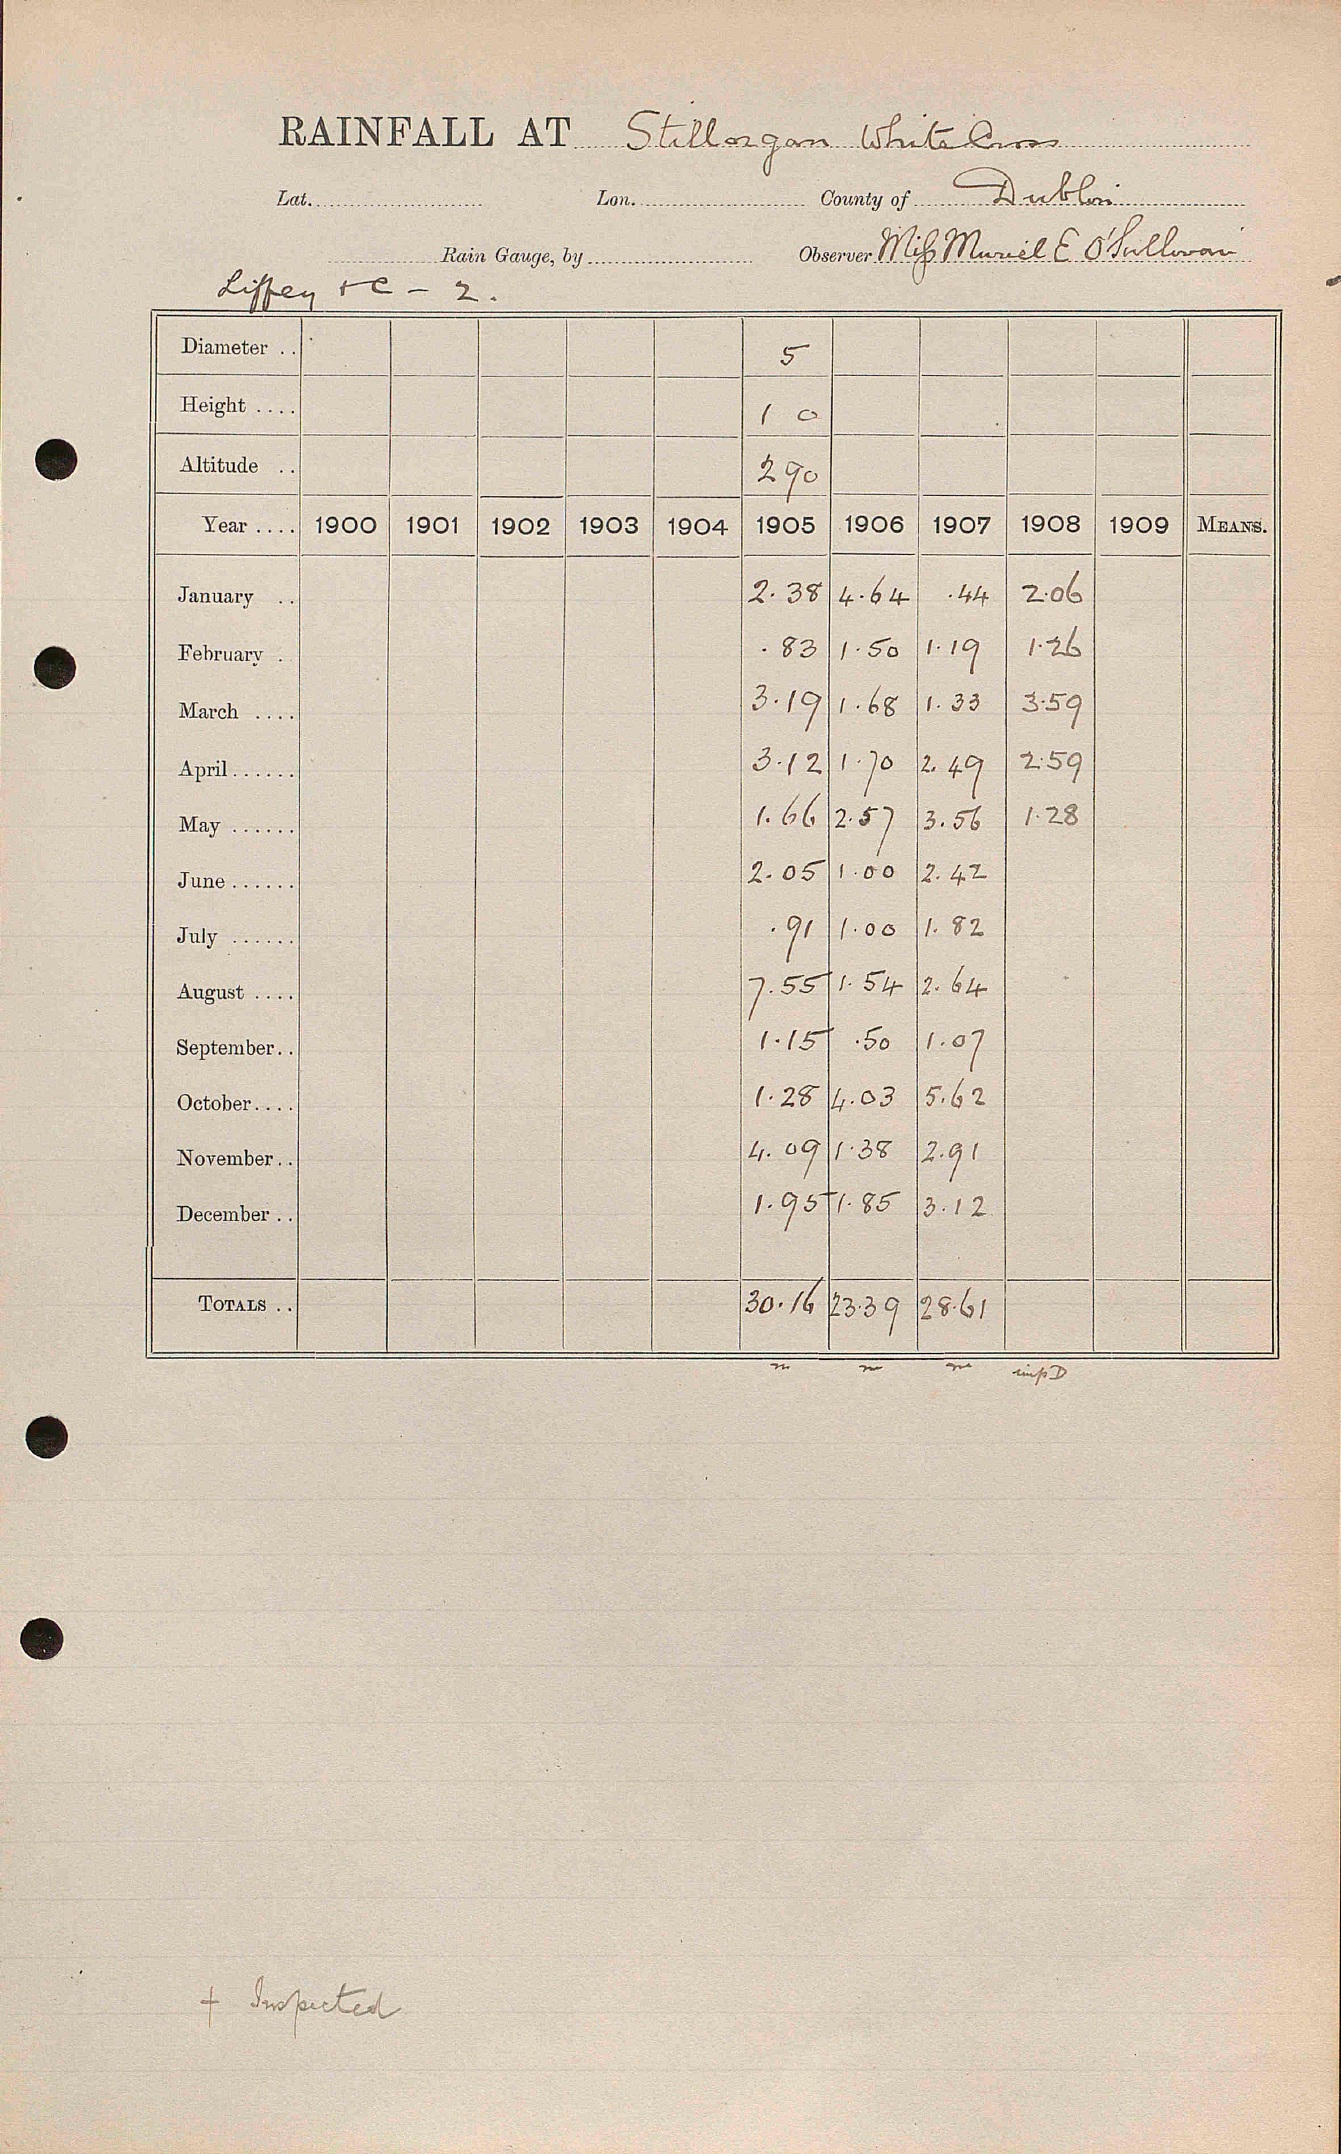 RAINFALL AT Stillorgan White Cross
Lat. Lon. County of Dublin
Rain Gauge, by Observer Miss Muriel E O'Sullivan
Liffey &c - 2.
Diameter .. 5
Height .... 1 0
Altitude .. 290
Year .... 1900 1901 1902 1903 1904 1905 1906 1907 1908 1909 MEANS.
January .. 2.38 4.64 .44 2.06
February . .83 1.50 1.19 1.26
March .... 3.19 1.68 1.33 3.59
April ...... 3.12 1.70 2.49 2.59
May ...... 1.66 2.57 3.56 1.28
June ...... 2.05 1.00 2.42
July ...... .91 1.00 1.82
August .... 7.55 1.54 2.64
September .. 1.15 .50 1.07
October .... 1.28 4.03 5.62
November .. 4.09 1.38 2.91
December .. 1.95 1.85 3.12
TOTALS .. 30.16 23.39 28.61
m m m impD
+ Inspected